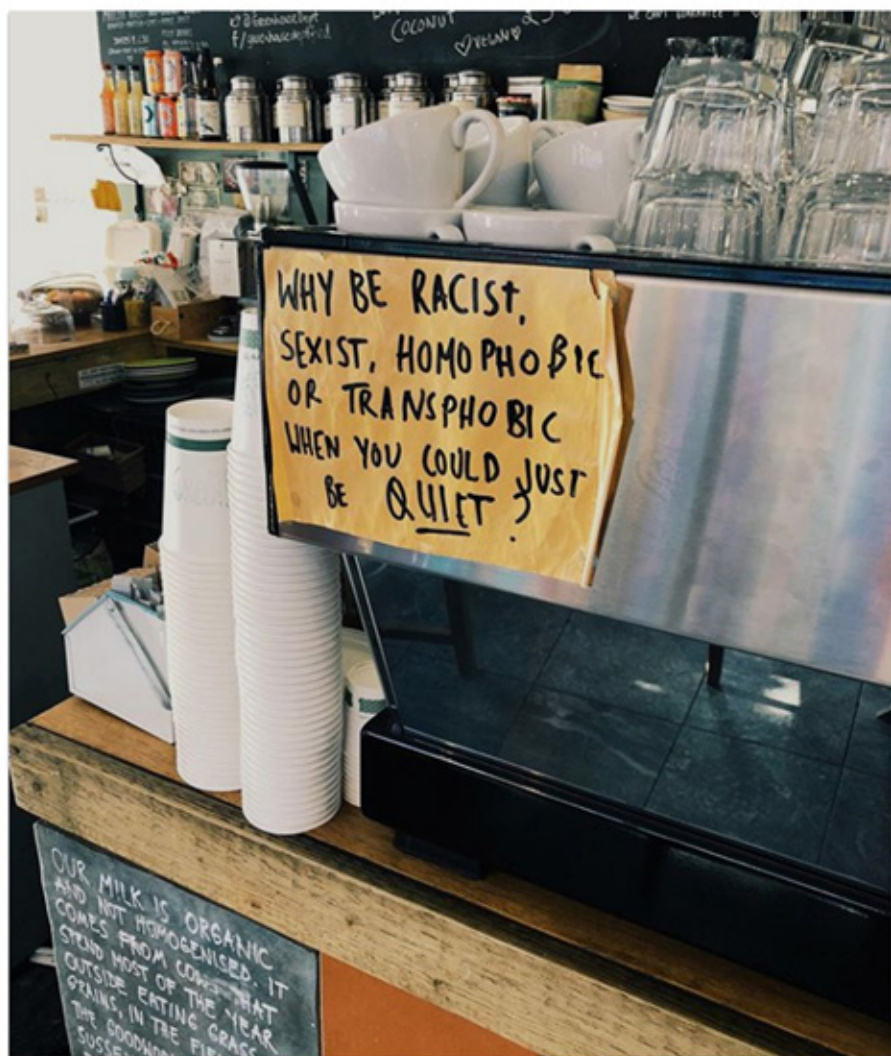 COCONUT
VEGAN
WHY BE RACIST,
SEXIST, HOMOPHOBIC
OR TRANSPHOBIC
WHEN YOU COULD JUST
BE QUIET?
OUR MILK IS ORGANIC
AND NOT HOMOGENISED. IT
COMES FROM COWS THAT
SPEND MOST OF THE YEAR
OUTSIDE EATING GRASS
GRAINS, IN THE